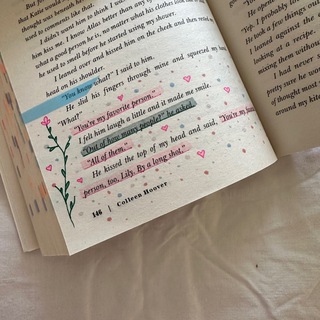 that Katie would
used to comments like that.
I didn't want him to think I was
him kiss me. I know Atlas better than any of
that a good person he is, no matter what his clothes look
he used to smell before he started using my shower.
I leaned over and kissed him on the cheek and then
head on his shoulder.
"You know what" I said to him.
He slid his fingers through mine and squeezed my
"What?"
"You're my favorite person."
I felt him laugh a little and it made me smile.
"Out of how many people?" he asked.
"All of them."
He kissed the top of my head and said, "You're my
person, too, Lily. By a long shot."
146 | Colleen Hoover
He opened
Top. I probably
He took a few things
looking at a recipe.
mixing them without
I had never
pretty sure he
of thought
around my kitchen